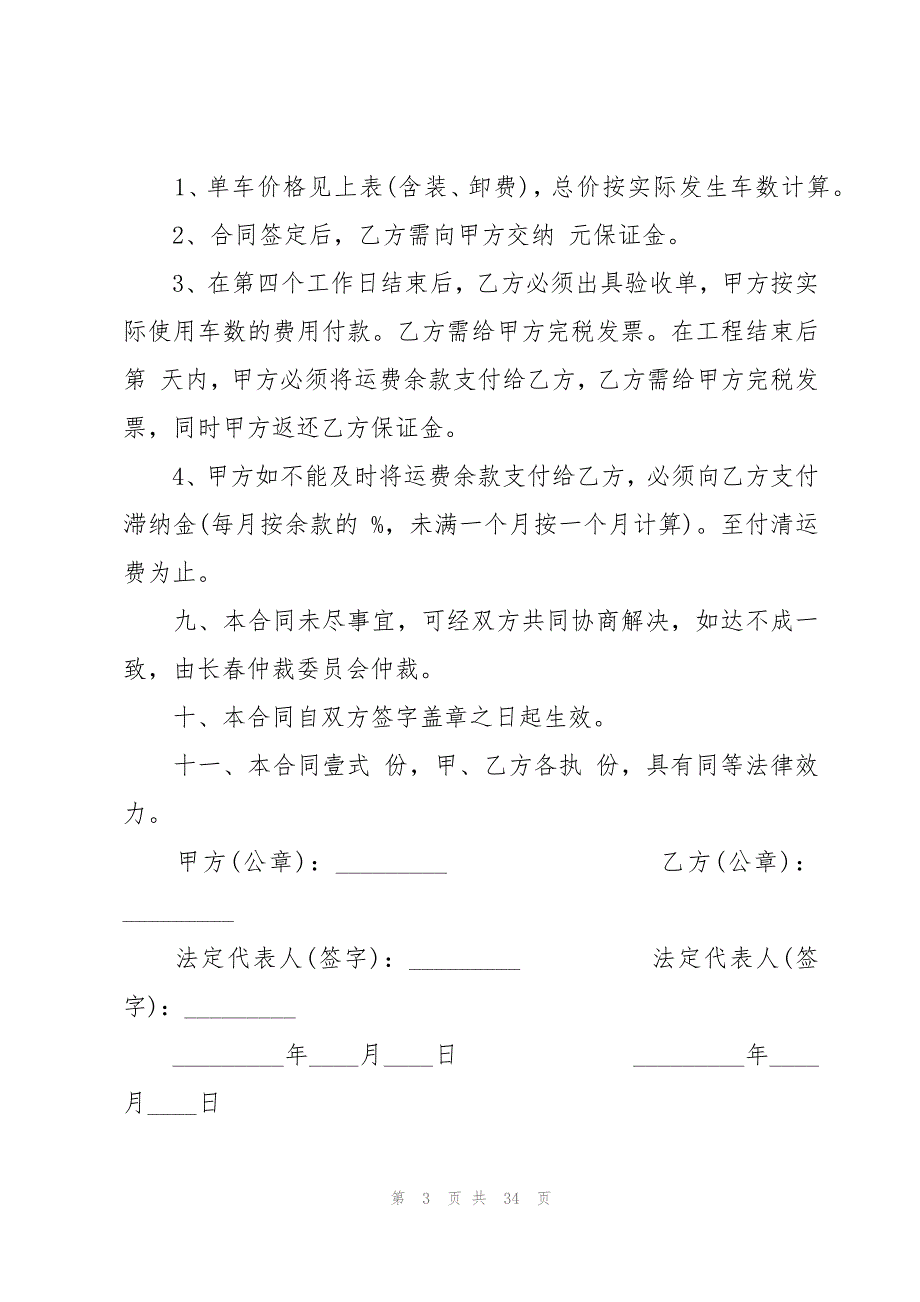 1、单车价格见上表(含装、卸费)，总价按实际发生车数计算。
2、合同签定后，乙方需向甲方交纳 元保证金。
3、在第四个工作日结束后，乙方必须出具验收单，甲方按实
际使用车数的费用付款。乙方需给甲方完税发票。在工程结束后
第 天内，甲方必须将运费余款支付给乙方，乙方需给甲方完税发
票，同时甲方返还乙方保证金。
4、甲方如不能及时将运费余款支付给乙方，必须向乙方支付
滞纳金(每月按余款的 %，未满一个月按一个月计算)。至付清运
费为止。
九、本合同未尽事宜，可经双方共同协商解决，如达不成一
致，由长春仲裁委员会仲裁。
十、本合同自双方签字盖章之日起生效。
十一、本合同壹式 份，甲、乙方各执 份，具有同等法律效
力。
甲方(公章)：_________ 乙方(公章)：
_________
法定代表人(签字)：_________ 法定代表人(签
字)：_________
_________年____月____日 _________年____
月____日
第 3 页 共 34 页